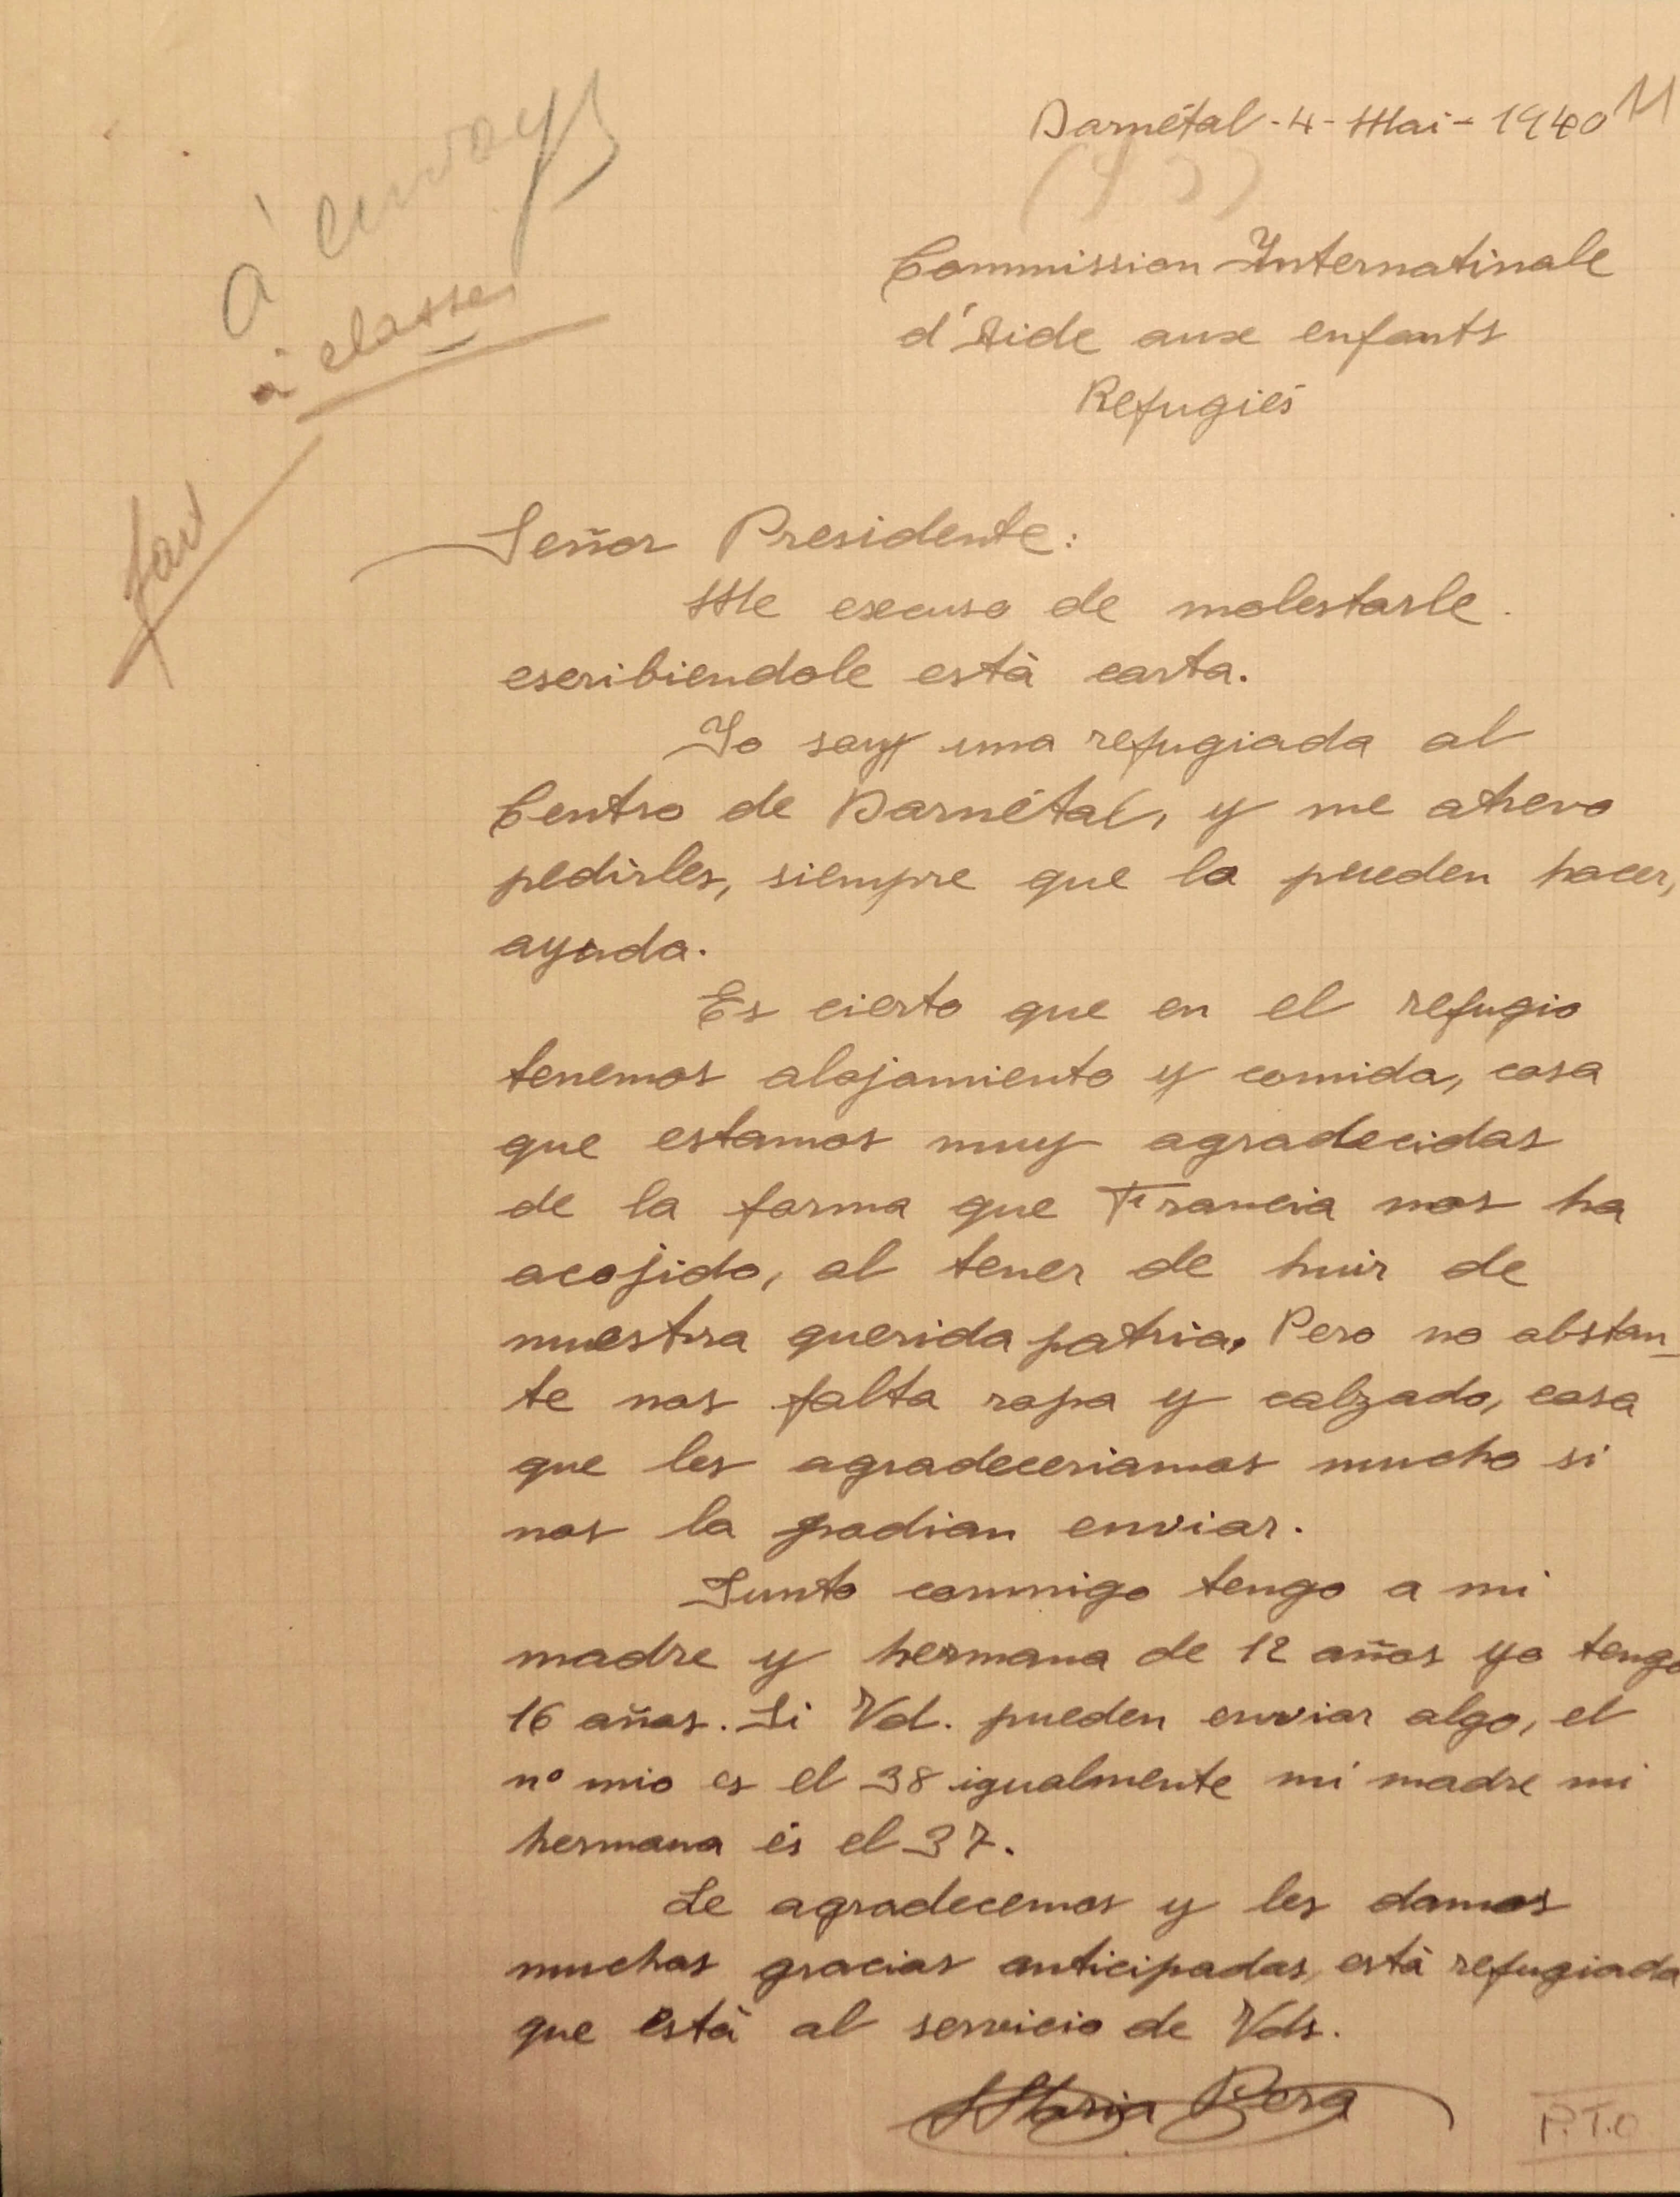 Darnétal - 4 - Mai - 1940
à envoyer
à classer
Commission Internatinale
d'Aide aux enfants
Refugiés
Señor Presidente:
Me escuso de molestarle
escribiendole està carta.
Yo soy una refugiada al
Centro de Darnétal, y me atrevo
pedirles, siempre que lo pueden hacer,
ayuda.
Es cierto que en el refugio
tenemos alojamiento y comida, cosa
que estamos muy agradecidas
de la forma que Francia nos ha
acojido, al tener de huir de
nuestra querida patria. Pero no obstan-
te nos falta ropa y calzado, cosa
que les agradeceriamos mucho si
nos la podian enviar.
Junto conmigo tengo a mi
madre y hermana de 12 años yo tengo
16 años. Si Vd. pueden enviar algo, el
nº mio es el 38 igualmente mi madre mi
hermana és el 37.
Le agradecemos y les damos
muchas gracias anticipadas, està refugiada
que està al servicio de Vds.
Maria Bera
P.T.O